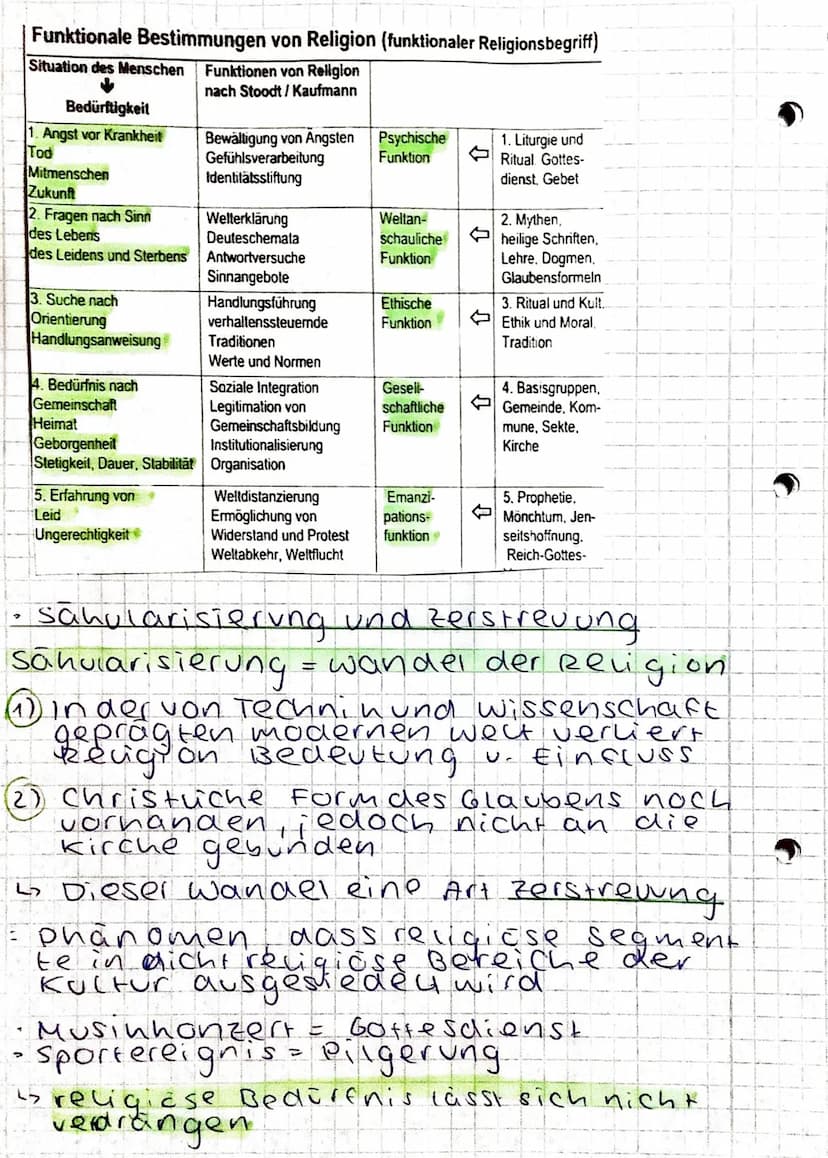 Funktionale Bestimmungen von Religion (funktionaler Religionsbegriff)
Situation des Menschen
Bedürftigkeit
Funktionen von Religion
nach Stoodt / Kaufmann
1. Angst vor Krankheit
Tod
Mitmenschen
Zukunft
Bewältigung von Ängsten
Gefühlsverarbeitung
Identitätsstiftung
Psychische
Funktion
1. Liturgie und
Ritual Gottes-
dienst, Gebet
2. Fragen nach Sinn
des Lebens
des Leidens und Sterbens
Welterklärung
Deuteschemata
Antwortversuche
Sinnangebote
Weltan-
schauliche
Funktion
2. Mythen,
heilige Schriften,
Lehre, Dogmen,
Glaubensformeln
3. Suche nach
Orientierung
Handlungsanweisung
Handlungsführung
verhaltenssteuernde
Traditionen
Werte und Normen
Ethische
Funktion
3. Ritual und Kult.
Ethik und Moral.
Tradition
4. Bedürfnis nach
Gemeinschaft
Heimat
Geborgenheit
Stetigkeit, Dauer, Stabilität
Soziale Integration
Legitimation von
Gemeinschaftsbildung
Institutionalisierung
Organisation
Gesell-
schaftliche
Funktion
4. Basisgruppen,
Gemeinde, Kom-
mune, Sekte,
Kirche
5. Erfahrung von
Leid
Ungerechtigkeit
Weltdistanzierung
Ermöglichung von
Widerstand und Protest
Weltabkehr, Weltflucht
Emanzi-
pations-
funktion
5. Prophetie.
Mönchtum, Jen-
seitshoffnung.
Reich-Gottes-
· Säkularisierung und Zerstreuung
Säkularisierung = Wandel der Religion
1) In der von Technik und Wissenschaft
geprägten modernen Welt verliert
Religion Bedeutung u. Einfluss
2) Christliche Form des Glaubens noch
vorhanden, jedoch nicht an die
Kirche gebunden
↳ Dieser Wandel eine Art Zerstreuung
= Phänomen, dass religiöse Segment
te in nicht religiöse Bereiche der
Kultur ausgesiedelt wird
· Musikkonzert = Gottesdienst
· Sportereignis = Pilgerung
↳ religiöse Bedürfnis lässt sich nicht
verdrängen